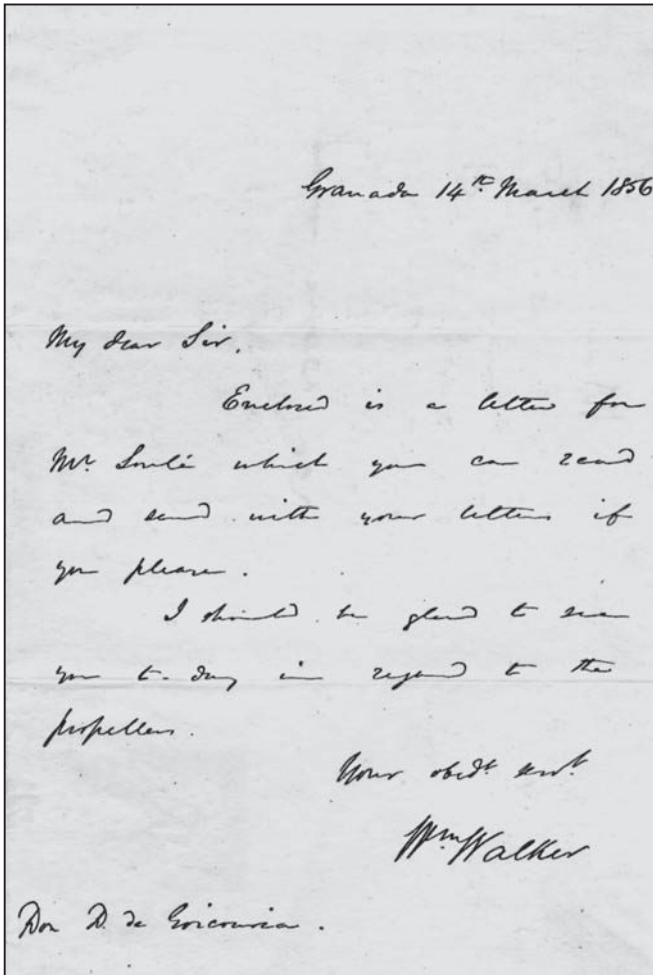 Granada 14th March 1856
My dear Sir,
Enclosed is a letter for
Mr. Soulé which you can read
and send with your letters if
you please.
I should be glad to see
you to-day in regard to the
propellers.
Your obedt servt.
Wm Walker
Don D. de Goicouria.